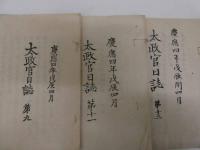 慶應四年戊辰閏四月
太政官日誌
慶應四年戊辰四月
太政官日誌 第十一
慶應四年戊辰四月
太政官日誌 第九